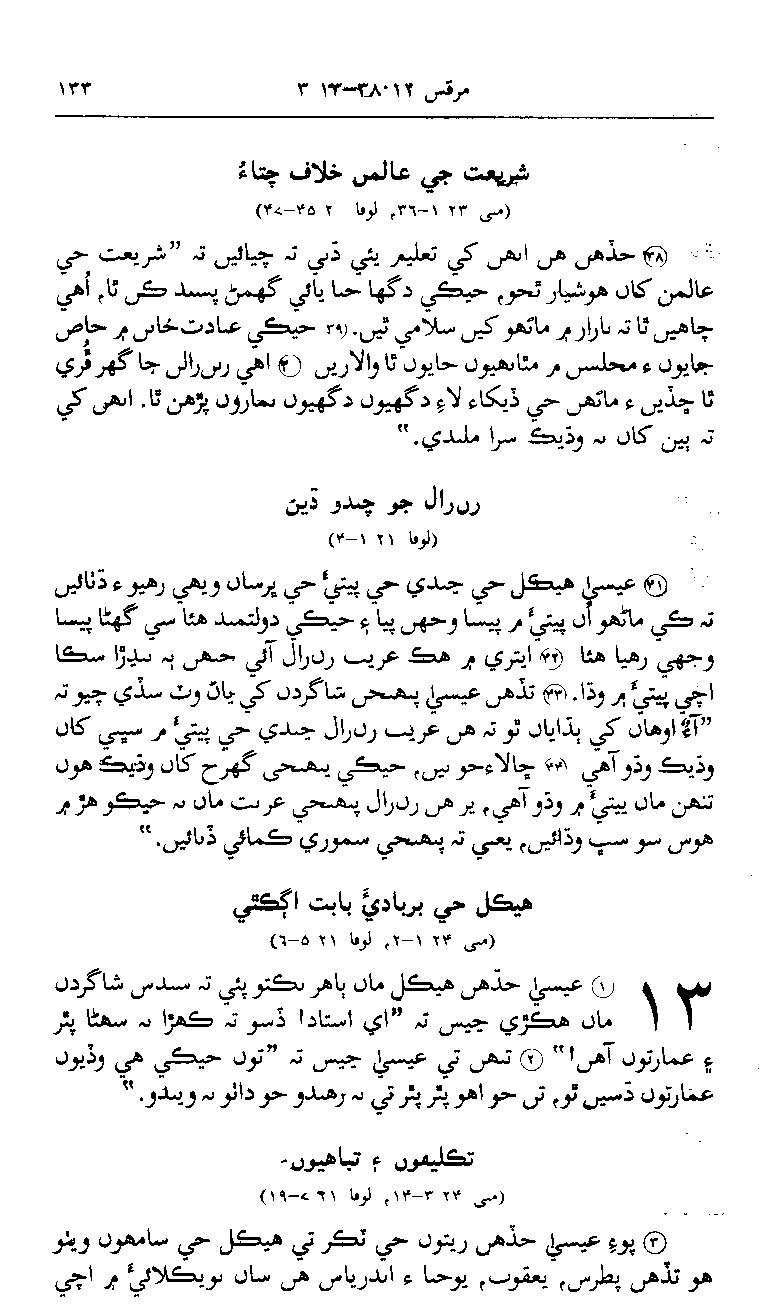 مرقس ١٢:٣٨—١٣:٣ ١٣٣
شريعت جي عالمن خلاف چتاءُ
(متي ٢٣:١—٣٦، لوقا ٢٠:٤٥—٤٧)
(٣٨) جڏهن هن انهن کي تعليم پئي ڏني تہ چيائين تہ ”شريعت جي
عالمن کان هوشيار ٿجو، جيڪي ڊگها جبا پائي گهمڻ پسند ڪن ٿا، اُهي
چاهين ٿا تہ بازار ۾ ماڻهو کين سلامي ٿين. (٣٩) جيڪي عبادت‌خانن ۾ خاص
جايون ۽ مجلسن ۾ مٿانهيون جايون ٿا والارين (٤٠) اهي رن‌زالن جا گهر ڦُري
ٿا ڇڏين ۽ ماڻهن جي ڏيکاءَ لاءِ ڊگهيون ڊگهيون نمازون پڙهن ٿا. انهن کي
تہ ٻين کان بہ وڌيڪ سزا ملندي.“
رن‌زال جو چندو ڏيڻ
(لوقا ٢١:١—٤)
(٤١) عيسيٰ هيڪل جي چندي جي پيتيءَ جي ڀرسان ويهي رهيو ۽ ڏٺائين
تہ ڪي ماڻهو اُن پيتيءَ ۾ پيسا وجهن پيا ۽ جيڪي دولتمند هئا سي گهڻا پيسا
وجهي رهيا هئا (٤٢) ايتري ۾ هڪ غريب رن‌زال آئي جنهن ٻہ ننڍڙا سڪا
اچي پيتيءَ ۾ وڌا. (٤٣) تڏهن عيسيٰ پنهنجن شاگردن کي پاڻ وٽ سڏي چيو تہ
”آءٌ اوهان کي ٻڌايان ٿو تہ هن غريب رن‌زال چندي جي پيتيءَ ۾ سڀني کان
وڌيڪ وڌو آهي (٤٤) ڇالاءِ‌جو ٻين، جيڪي پنهنجي گهرج کان وڌيڪ هون
تنهن مان پيتيءَ ۾ وڌو آهي، پر هن رن‌زال پنهنجي غربت مان بہ جيڪو هڙ ۾
هوس سو سڀ وڌائين، يعني تہ پنهنجي سموري ڪمائي ڏنائين.“
هيڪل جي بربادي‏ءَ بابت اڳڪٿي
(متي ٢٤:١—٢، لوقا ٢١:٥—٦)
١٣ (١) عيسيٰ جڏهن هيڪل مان ٻاهر نڪتو پئي تہ سندس شاگردن
مان هڪڙي چيس تہ ”اي استاد! ڏسو تہ ڪهڙا نہ سهڻا پٿر
۽ عمارتون آهن!“ (٢) تنهن تي عيسيٰ چيس تہ ”تون جيڪي هي وڏيون
عمارتون ڏسين ٿو، تن جو اهو پٿر پٿر تي نہ رهندو جو ڊاٺو نہ ويندو.“
تڪليفون ۽ تباهيون
(متي ٢٤:٣—١٤، لوقا ٢١:٧—١٩)
(٣) پوءِ عيسيٰ جڏهن زيتون جي ٽڪر تي هيڪل جي سامهون ويٺو
هو تڏهن پطرس، يعقوب، يوحنا ۽ اندرياس هن سان نويڪلائيءَ ۾ اچي